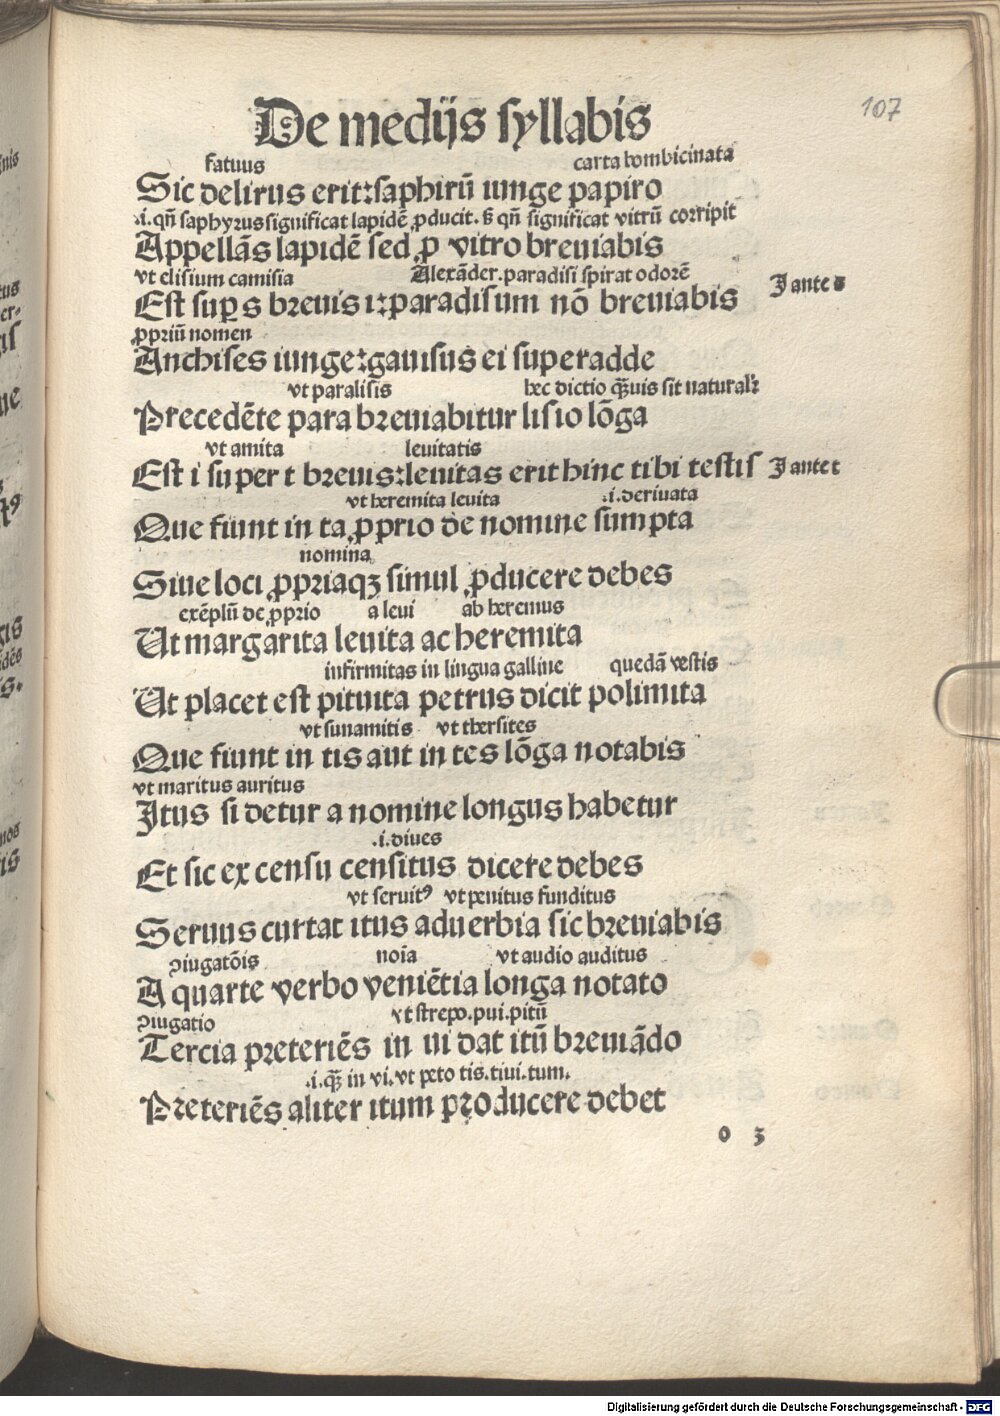 107
De medijs syllabis
fatuus carta bombicinata
Sic delirus erit:saphirū iunge papiro
.i. qñ saphyrus significat lapidē ꝓducit. sʒ qñ significat vitrū corripit
Appellās lapidē sed ꝓ vitro breuiabis
vt elisium camisia Alexāder. paradisi spirat odorē
Est sup s breuis i:paradisum nō breuiabis
I ante s
ꝓpriū nomen
Anchises iunge:gauisus ei superadde
vt paralisis hec dictio qͣ̃uis sit naturalʳ
Precedēte para breuiabitur lisio lōga
vt amita leuitatis
Est i super t breuis:leuitas erit hinc tibi testis
I ante t
vt heremita leuita .i. deriuata
Que fiunt in ta ꝓprio de nomine sumpta
nomina
Siue loci ꝓpriaqʒ simul ꝓducere debes
exēplū de ꝓprio a leui ab heremus
Ut margarita leuita ac heremita
infirmitas in lingua galline quedā vestis
Ut placet est pituita petrus dicit polimita
vt sunamitis vt thersites
Que fiunt in tis aut in tes lōga notabis
vt maritus auritus
Itus si detur a nomine longus habetur
.i. diues
Et sic ex censu censitus dicere debes
vt seruitꝰ vt penitus funditus
Seruus curtat itus aduerbia sic breuiabis
ꝯiugatōis noīa vt audio auditus
A quarte verbo veniētia longa notato
ꝯiugatio vt strepo. pui. pitū
Tercia preteriēs in ui dat itū breuiādo
.i. qͣ̃ in vi. vt peto tis. tiui. tum.
Preteriēs aliter itum producere debet
o 3
Digitalisierung gefördert durch die Deutsche Forschungsgemeinschaft - DFG